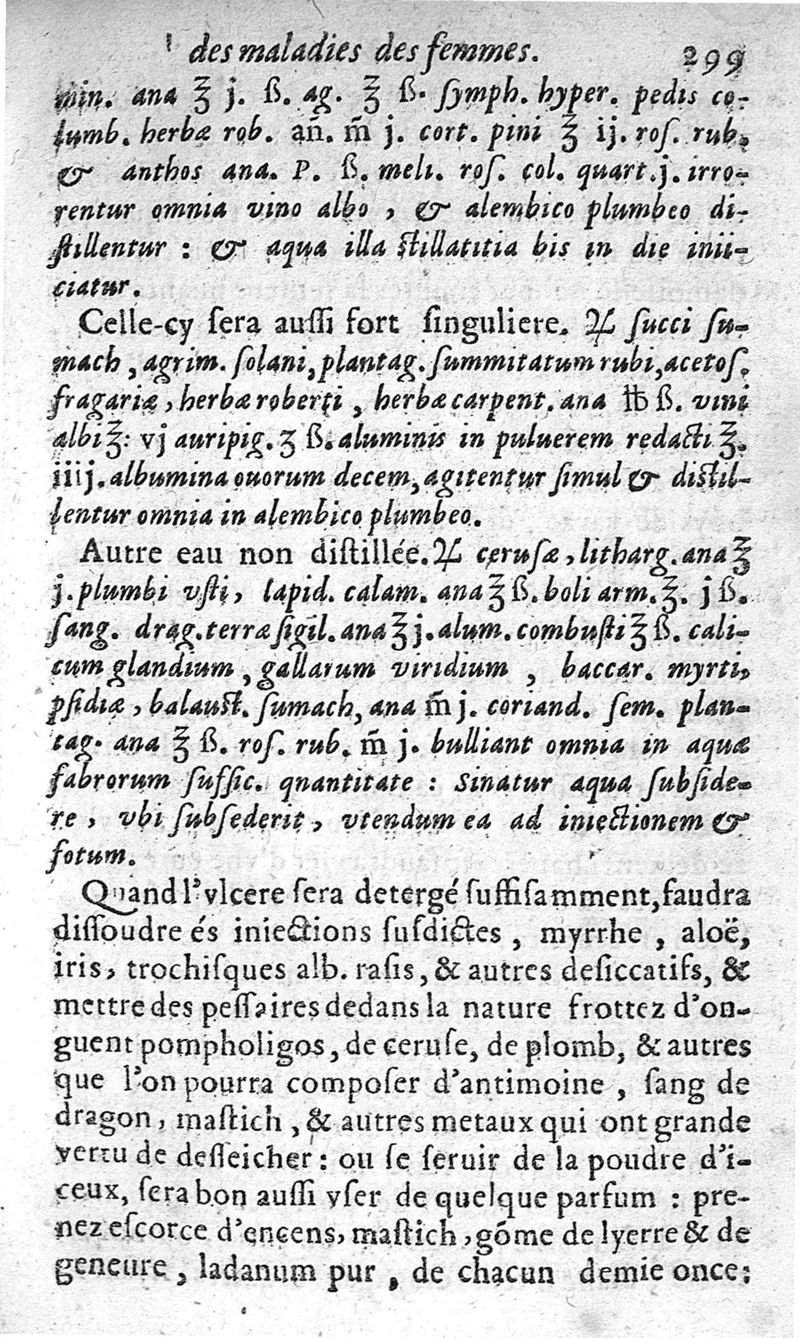 des maladies des femmes. 299
min. ana ℥ j. ß. ag. ℥ ß. ſymph. hyper. pedis co-
lumb. herbæ rob. añ. m̃ j. cort. pini ℥ ij. roſ. rub.
& anthos ana. P. ß. meli. roſ. col. quart. j. irro-
rentur omnia vino albo , & alembico plumbeo di-
ſtillentur : & aqua illa ſtillatitia bis in die inii-
ciatur.
Celle-cy ſera auſſi fort ſinguliere. ♃ ſucci ſu-
mach , agrim. ſolani, plantag. ſummitatum rubi, acetoſ.
fragariæ, herbæ roberti , herbæ carpent. ana ℔ ß. vini
albi ℥: vj auripig. ʒ ß. aluminis in puluerem redacti ℥.
iiij. albumina ouorum decem, agitentur ſimul & diſtil-
lentur omnia in alembico plumbeo.
Autre eau non diſtillée. ♃ ceruſæ, litharg. ana ℥
j. plumbi vſti, lapid. calam. ana ℥ ß. boli arm. ℥. j ß.
ſang. drag. terræ ſigil. ana ℥ j. alum. combuſti ℥ ß. cali-
cum glandium , gallarum viridium , baccar. myrti,
pſidiæ , balauſt. ſumach, ana m̃ j. coriand. ſem. plan-
tag. ana ℥ ß. roſ. rub. m̃ j. bulliant omnia in aquæ
fabrorum ſuffic. qnantitate : Sinatur aqua ſubſide-
re , vbi ſubſederit, vtendum ea ad iniectionem &
fotum.
Quand l'vlcere ſera detergé ſuffiſamment, faudra
diſſoudre és iniections ſuſdictes , myrrhe , aloë,
iris, trochiſques alb. raſis, & autres deſiccatifs, &
mettre des peſſaires dedans la nature frottez d'on-
guent pompholigos, de ceruſe, de plomb, & autres
que l'on pourra compoſer d'antimoine , ſang de
dragon, maſtich , & autres metaux qui ont grande
vertu de deſſeicher : ou ſe ſeruir de la poudre d'i-
ceux, ſera bon auſſi vſer de quelque parfum : pre-
nez eſcorce d'encens, maſtich , gõme de lyerre & de
geneure , ladanum pur , de chacun demie once;